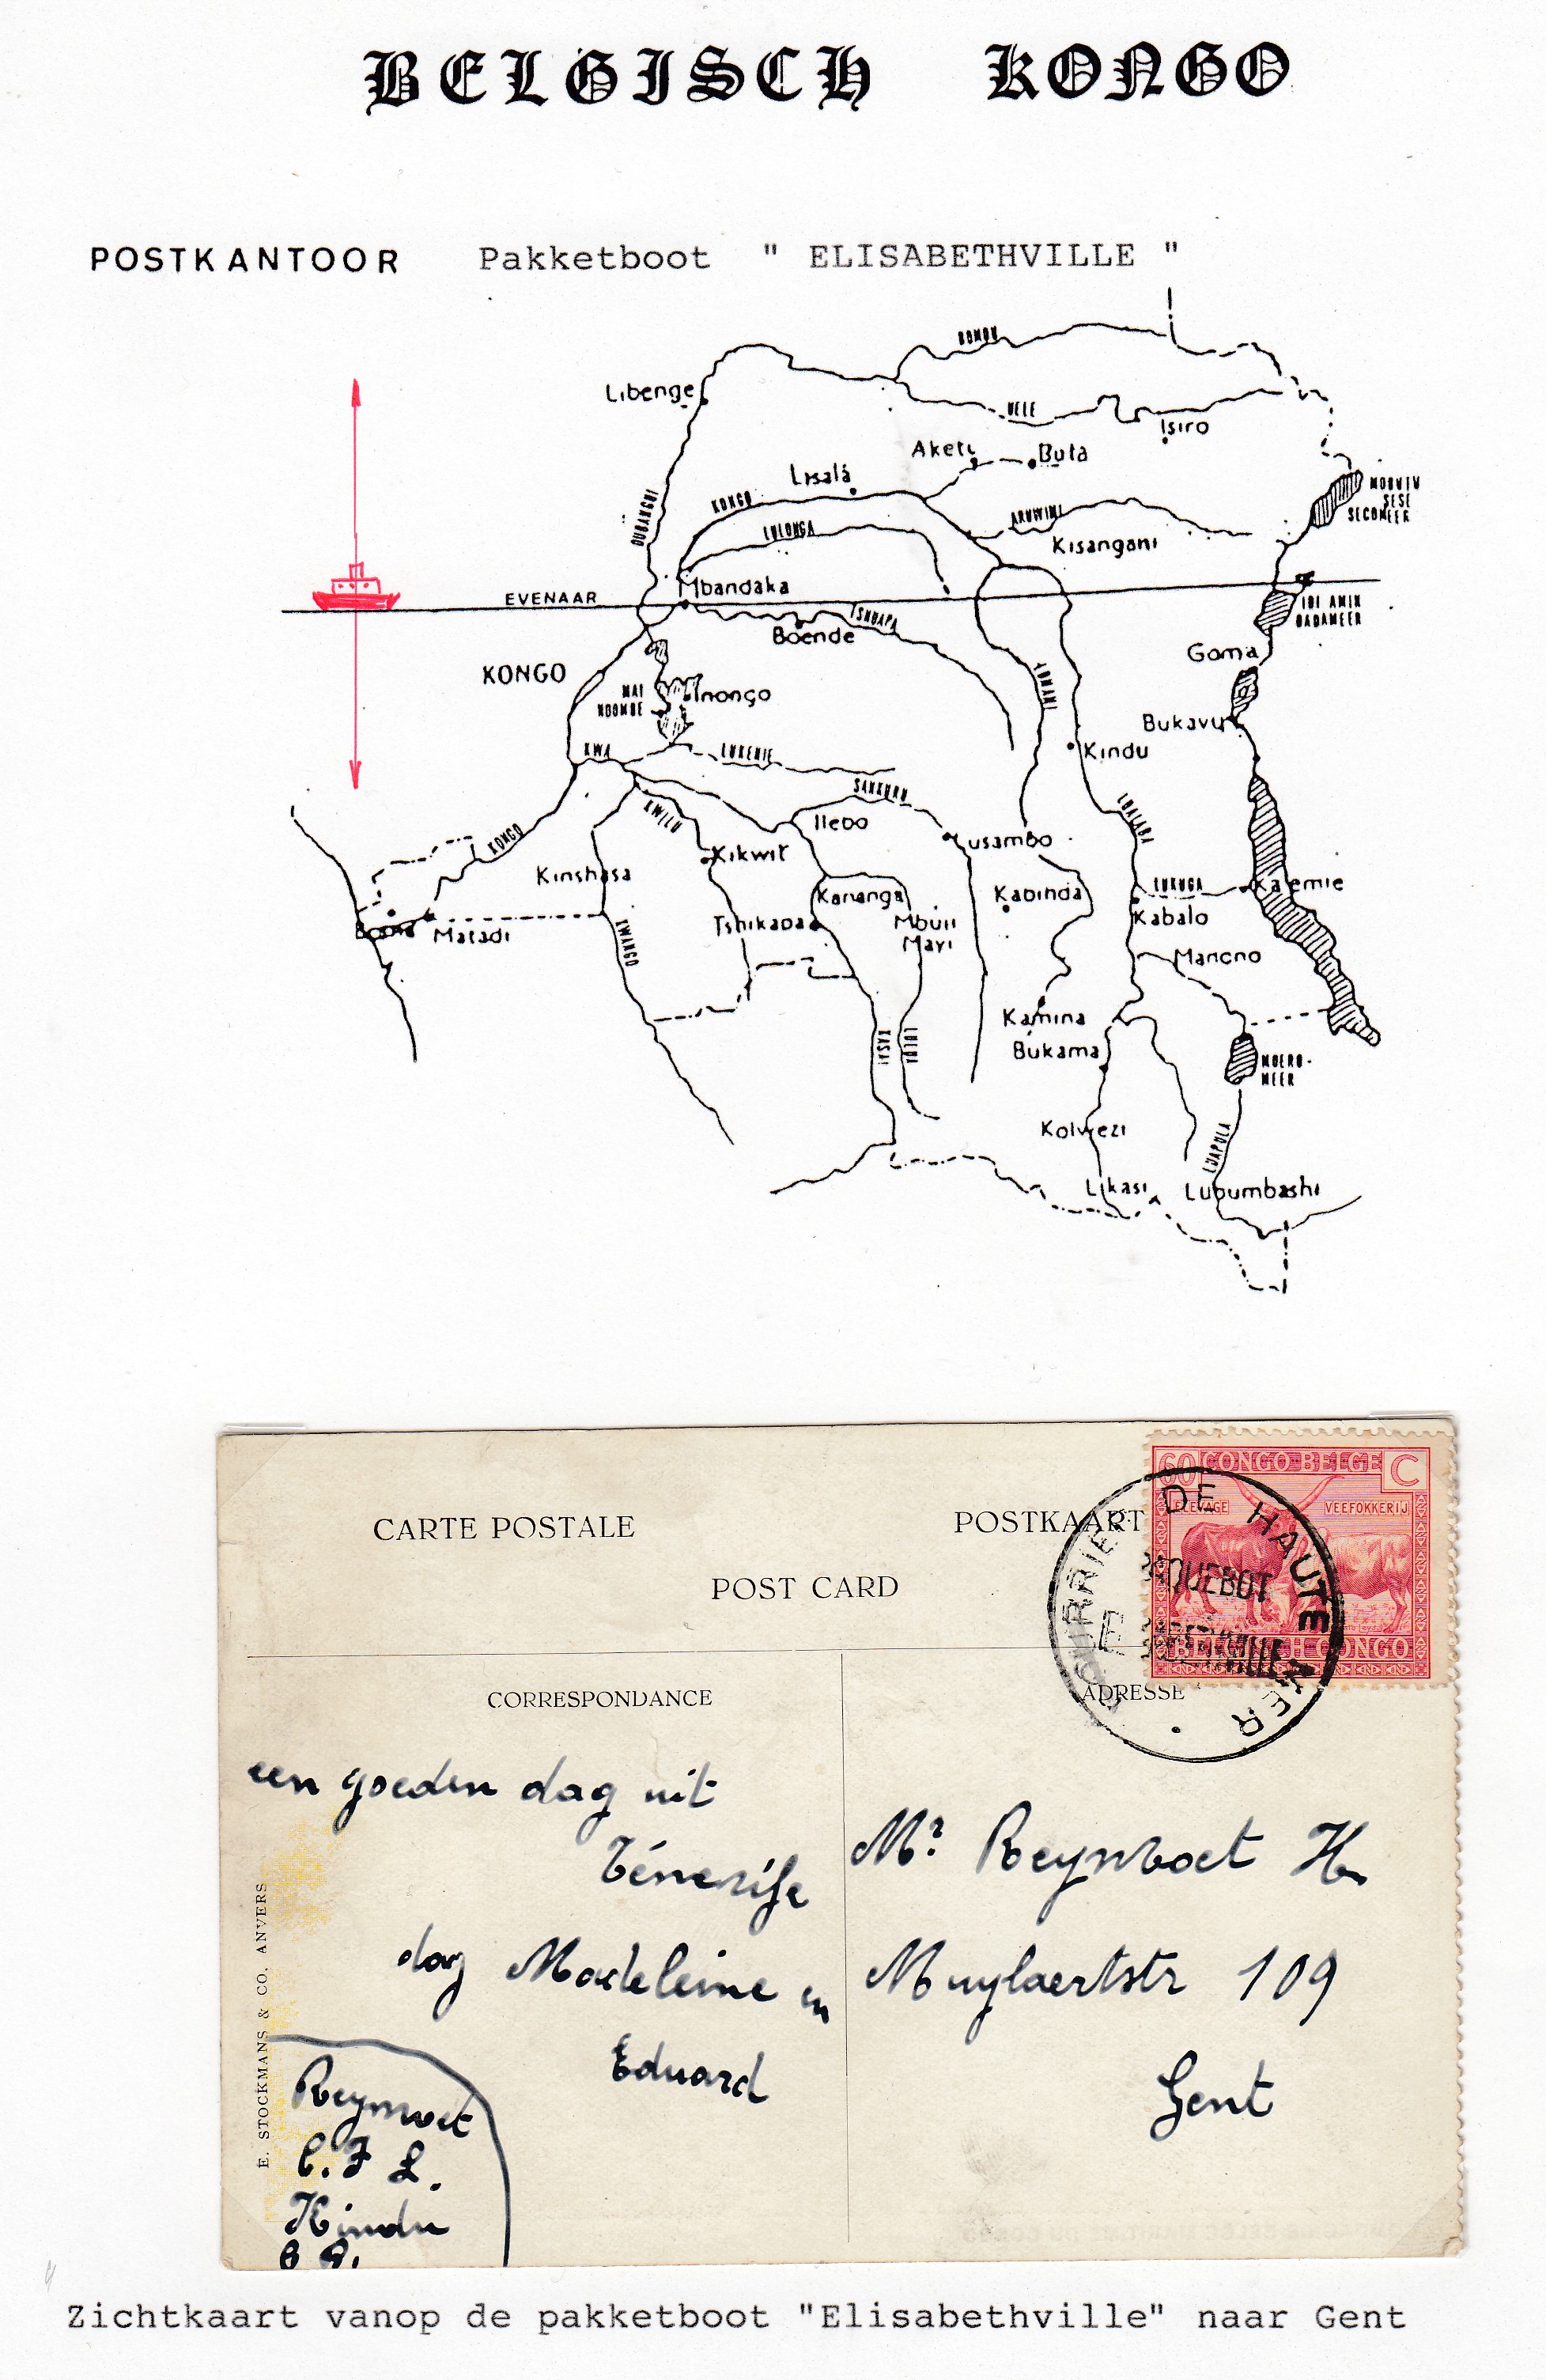 BELGISCH KONGO
POSTKANTOOR Pakketboot " ELISABETHVILLE "
BOMOU
Libenge
UELE
Isiro
Aketi
Buta
Lisala
MOBUTU
SESE
SECOMEER
OUBANGUI
KONGO
LULONGA
ARUWIMI
Kisangani
Mbandaka
EVENAAR
TSHUAPA
IDI AMIN
DADAMEER
Boende
Goma
KONGO
LOMAMI
MAI
NDOMBE
Inongo
Bukavu
KWA
LUKENIE
Kindu
SANKURU
KWILU
Ilebo
LUALABA
KONGO
Lusambo
Kikwit
Kinshasa
Kananga
Kabinda
LUKUGA
Kalemie
Kabalo
Tshikapa
Mbuji
Mayi
Boma
Matadi
KWANGO
Manono
Kamina
Bukama
KASAI
LULUA
MOERO-
MEER
Kolwezi
LUAPULA
Likasi
Lubumbashi
60 CONGO BELGE C
ELEVAGE VEEFOKKERIJ
BELGISCH CONGO
COURRIER DE HAUTE MER
PAQUEBOT
ELISABETHVILLE
CARTE POSTALE POSTKAART
POST CARD
CORRESPONDANCE
ADRESSE
een goeden dag uit
Ténerife
dag Madeleine en
Eduard
Reynvoet
C.F.L.
Kindu
Mr Reynvoet H.
Muylaertstr 109
Gent
E. STOCKMANS & CO. ANVERS
Zichtkaart vanop de pakketboot "Elisabethville" naar Gent